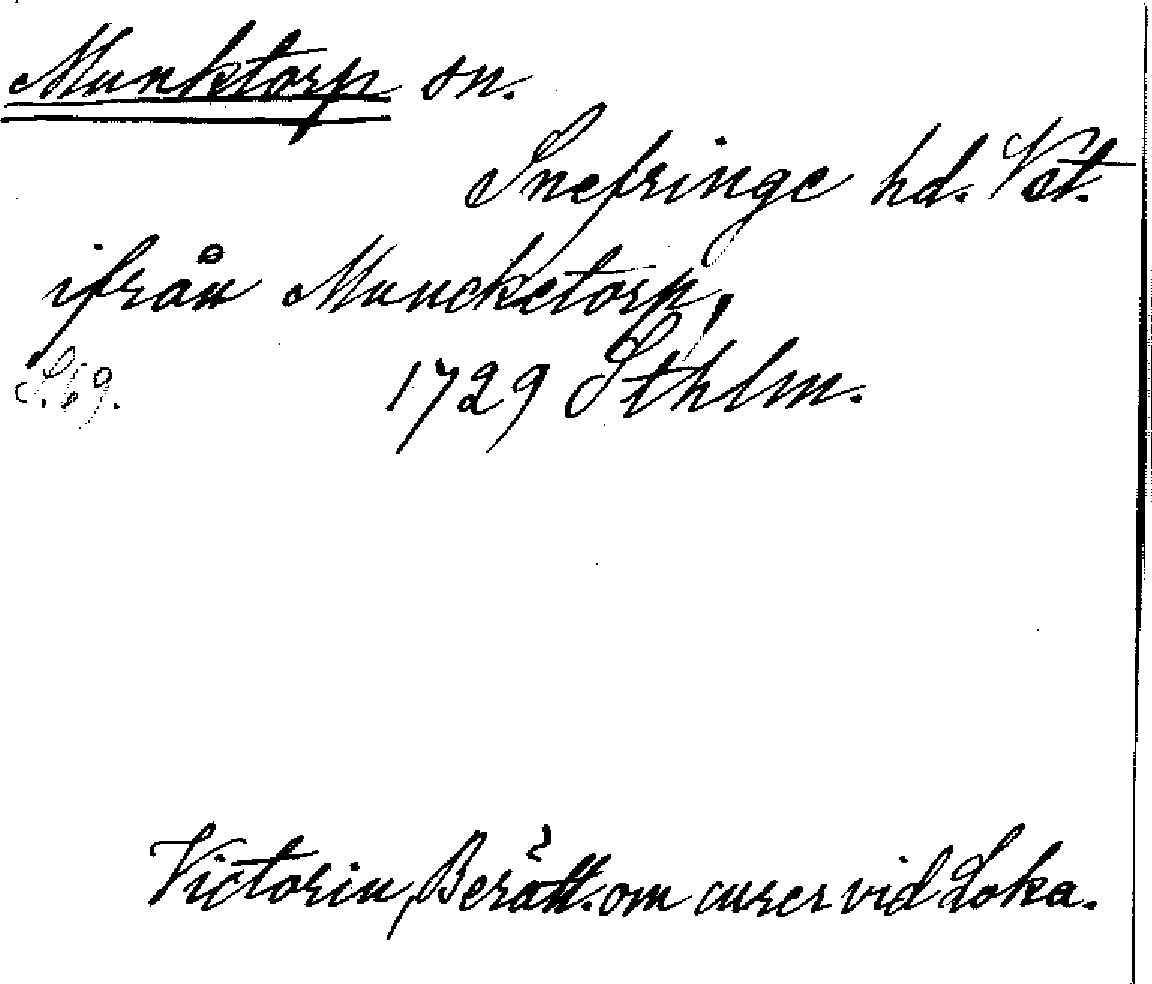 Munktorp sn.
Snefringe hd. Vst.
ifrån Muncketorp,
S. 69. 1729 Sthlm.
Victorin, Berätt. om curer vid Loka.